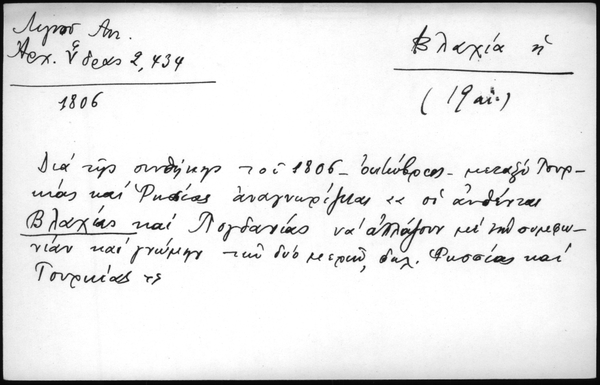 Λιγνοῦ Αν.
Ἀρχ. Ὕδρας 2,434
1806
Βλαχία ἡ
(19 αἰ.)
Διά τῆς συνθήκης τοῦ 1806 - ὀκτώβριος - μεταξύ Τουρ-
κίας καί Ρωσσίας ἀναγνωρίζεται οἱ αὐθένται
Βλαχίας καί Πογδανίας νά ἀλλάζουν μέ τήν συμφω-
νίαν καί γνώμην τῶν δύο μερῶν, δηλ. Ρωσσίας καί
Τουρκίας